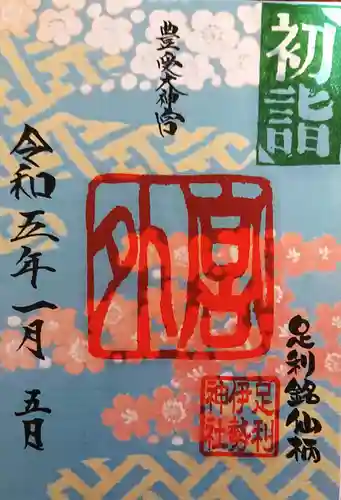 初詣
豊受大神宮
外宮
足利銘仙柄
足利
伊勢
神社
令和五年一月
五日